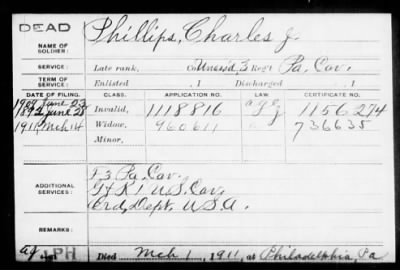 DEAD
NAME OF SOLDIER: Phillips, Charles J.
SERVICE: Late rank, Co. Unassd, 3 Regt Pa. Cav.
TERM OF SERVICE: Enlisted , 1 Discharged , 1
DATE OF FILING. CLASS. APPLICATION NO. CERTIFICATE NO.
1907 June 23
1892 June 28 Invalid, 1118816 1156274
1911 Mch 14 Widow, 960611 736635
Minor,
ADDITIONAL SERVICES:
F 3 Pa. Cav.
G & K 1 U.S. Cav.
Ord. Dept. U.S.A.
REMARKS:
JPH
Died Mch 1, 1911, at Philadelphia, Pa